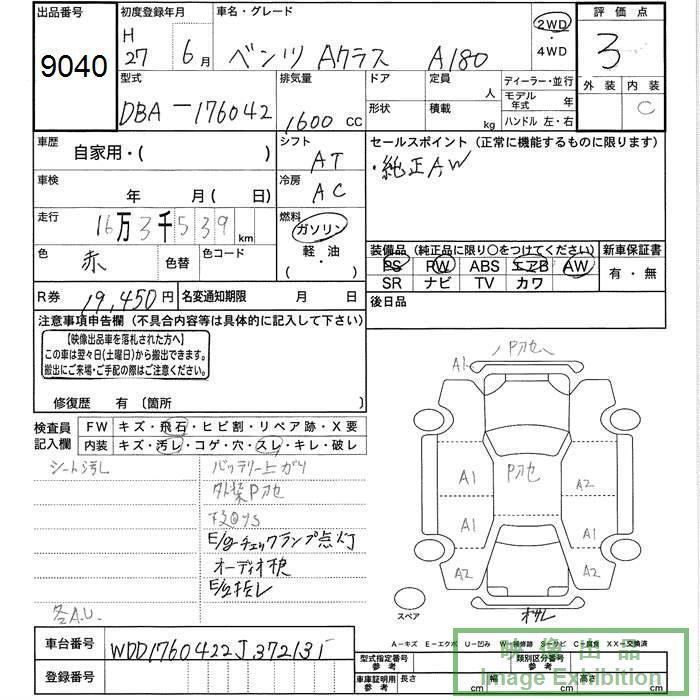 出品番号 初度登録年月 車名・グレード 評価点
9040 H 27 6月 ベンツ Aクラス A180 2WD ・4WD 3
型式 排気量 ドア 定員 人 ディーラー・並行 外装 内装
DBA-176042 1600 CC 形状 積載 kg モデル年式 年 C
ハンドル 左・右
車歴 自家用・( ) シフト AT セールスポイント (正常に機能するものに限ります)
・純正AW
車検 年 月( 日) 冷房 AC
走行 16万3千539 km 燃料 ガソリン
軽・油
( )
色 赤 色替 色コード
装備品 (純正品に限り○をつけてください) 新車保証書
PS PW ABS エアB AW 有・無
SR ナビ TV カワ
R券 19,450円 名変通知期限 月 日 後日品
注意事項申告欄 (不具合内容等は具体的に記入して下さい)
【映像出品車を落札された方へ】
この車は翌々日(土曜日)から搬出できます。
搬出にご来場・ご手配の際はご注意ください。
修復歴 有 〔箇所 〕
検査員記入欄 FW キズ・飛石・ヒビ割・リペア跡・X要
内装 キズ・汚レ・コゲ・穴・スレ・キレ・破レ
シート汚レ バッテリー上がり
外装Pカセ
E/gチェックランプ点灯
オーディオ
各A.U.
A1 Pカセ
A1 Pカセ A2
A1 A1
A2 A2
スペア
車台番号 WDD1760422J372131
登録番号
A-キズ E-エクボ U-凹み W-補修跡 S-サビ C-腐食 XX-交換済
型式指定番号 参考 類別区分番号 参考
車庫証明用 参考 長さ cm 幅 cm 高さ cm
映像出品
Image Exhibition